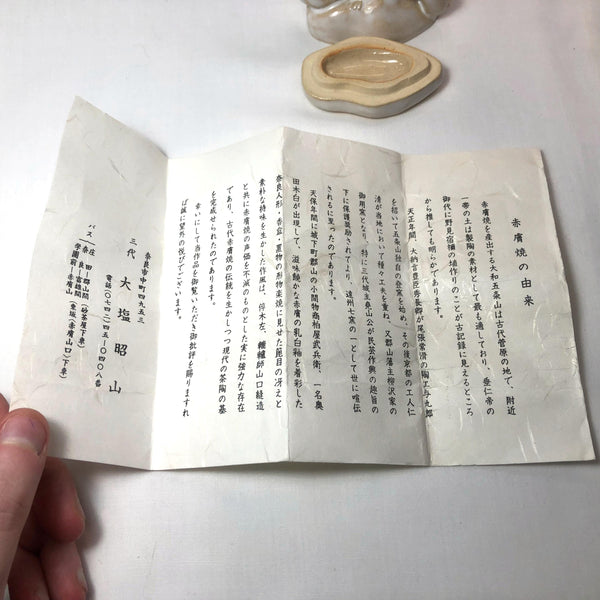 赤膚焼の由来
赤膚焼を産出する大和五条山は古代菅原の地で、附近
一帯の土は製陶の素材として最も適しており、垂仁帝の
御代に野見宿禰の埴作りのことが古記録に見えるところ
から推しても明らかであります。
天正年間、大納言豊臣秀長卿が尾張常滑の陶工与九郎
を招いて五条山独自の登窯を始め、その後京都の工人仁
清が当地において種々工夫を重ね、又郡山藩主柳沢家の
御用窯となり、特に三代城主堯山公が民芸作興の趣旨の
下に保護奨励されてより、遠州七窯の一として世に喧伝
されるに至ったのであります。
天保年間に城下町郡山の小間物商柏屋武兵衛、一名奥
田木白が出現して、滋味饒かな赤膚の乳白釉を着彩した
奈良人形・香盒・置物の形物楽焼に見せた箆目の冴えと
素朴な持味を生かした作風は、伜木左、轆轤師山口縫造
と共に赤膚焼の声価を不滅のものとした実に強力な存在
であり、古代赤膚焼の伝統を生かしつつ現代の茶陶の基
を完成せられたのであります。
幸いにして当作品を御覧いただき御批評を賜りますれ
ば誠に望外の悦びでございます。
奈良市中町四九五三
三代 大塩昭山
電話〇七四二-四五-〇四〇八番
バス 奈良―郡山間(砂茶屋下車)
学園前―富雄間
学園前―赤膚山(東坂(赤膚山口)下車)